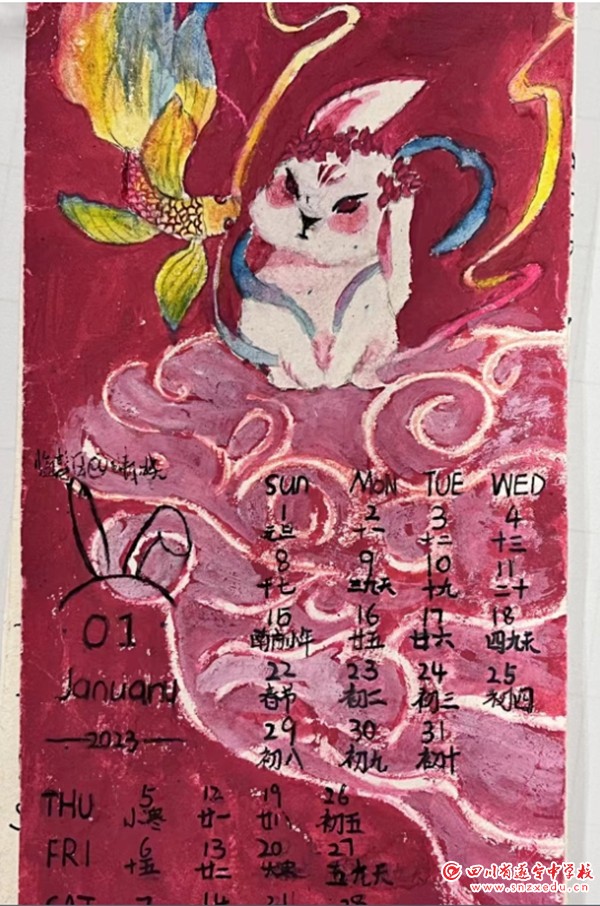 SUN MON TUE WED
1 2 3 4
元旦 十一 十二 十三
8 9 10 11
十七 三九天 十九 二十
15 16 17 18
南方小年 廿五 廿六 四九天
22 23 24 25
春节 初二 初三 初四
29 30 31
初八 初九 初十
01
January
2023
THU 5 12 19 26
小寒 廿一 廿八 初五
FRI 6 13 20 27
十五 廿二 大寒 五九天
SAT 7 14 21 28
四川省遂宁中学校
www.snzxedu.cn